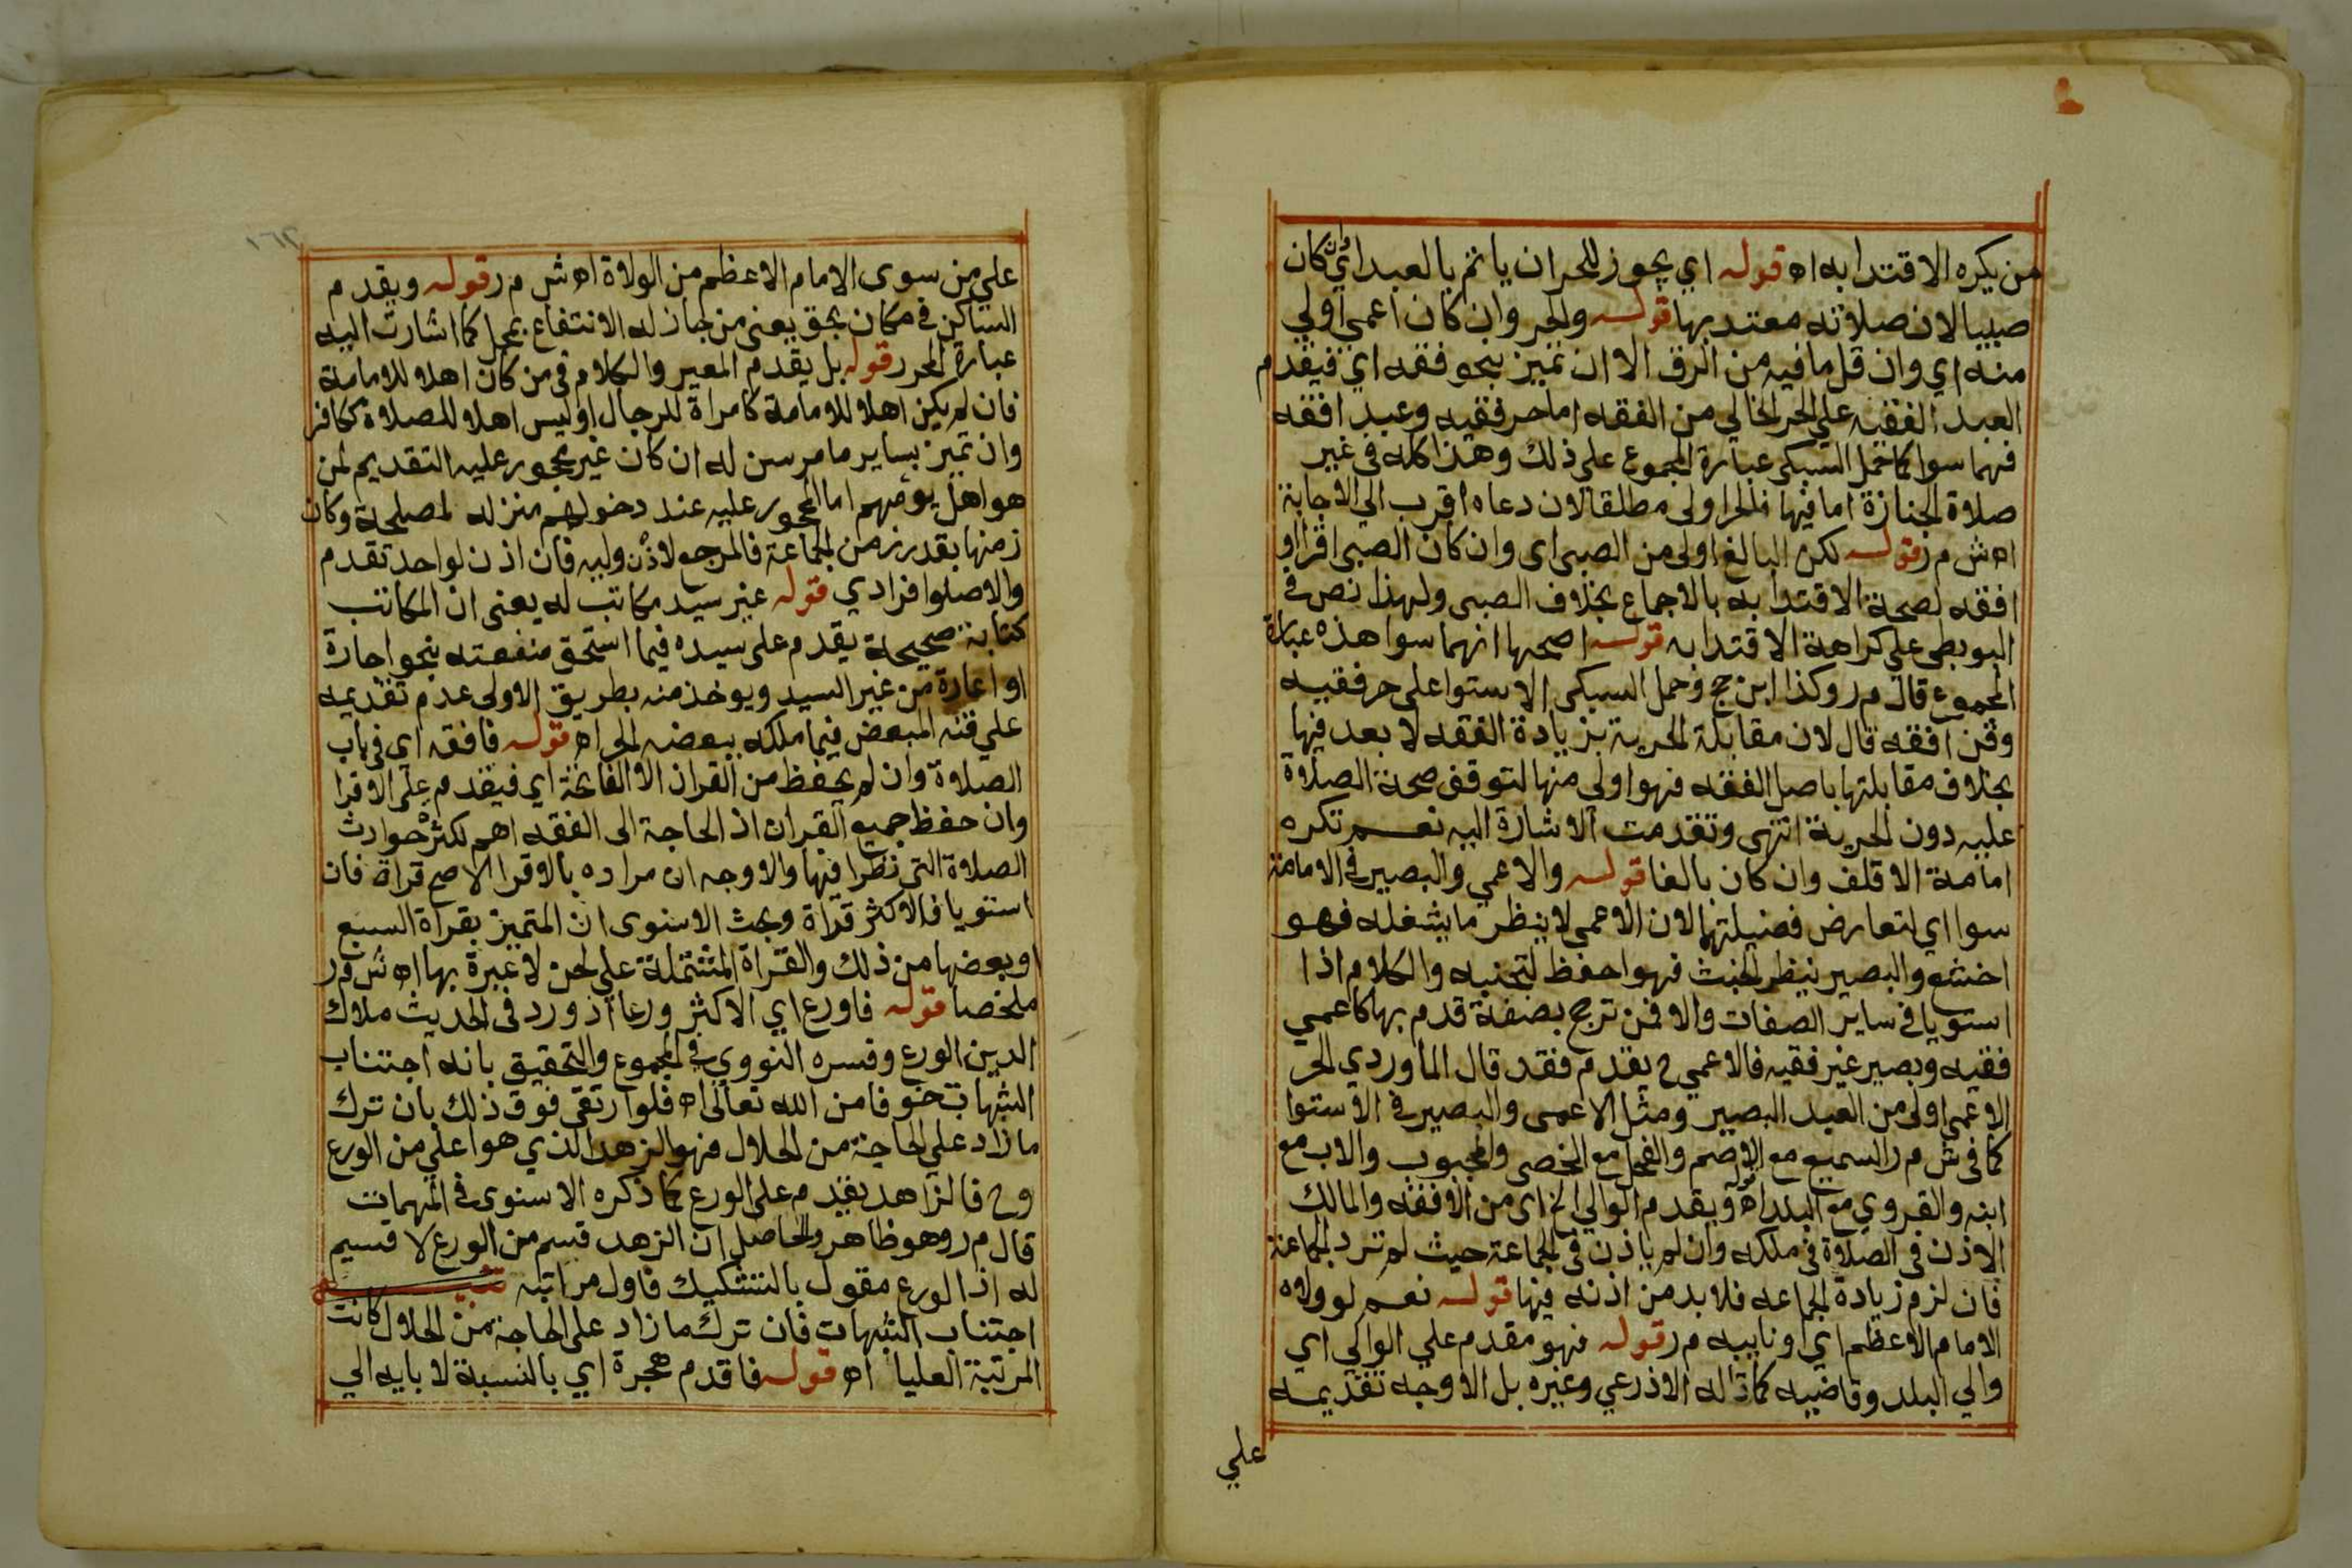 من يكره الاقتدا به اه قوله اي يجوز للحر ان ياتم بالعبد اي وان كان
صبيا لان صلاته معتد بها قوله والحر وان كان اعمى اولي
منه اي وان قل ما فيه من الرق الا ان تميز بنحو فقه اي فيقدم
العبد الفقيه علي الحر الخالي من الفقه اما حر فقيه وعبد افقه
فهما سوا كما حمل السبكي عبارة المجموع علي ذلك وهذا كله في غير
صلاة الجنازة اما فيها فالحر اولى مطلقا لان دعاه اقرب الي الاجابة
اه ش م ر قوله لكن البالغ اولى من الصبي اي وان كان الصبي اقرا او
افقه لصحة الاقتدا به بالاجماع بخلاف الصبي ولهذا نص في
البويطي علي كراهة الاقتدا به قوله اصحها انهما سوا هذه عبارة
المجموع قال م ر وكذا ابن حج وحمل السبكي الاستوا على حر فقيه
وقن افقه قال لان مقابلة الحرية بزيادة الفقه لا بعد فيها
بخلاف مقابلتها باصل الفقه فهو اولى منها لتوقف صحة الصلاة
عليه دون الحرية انتهى وتقدمت الاشارة اليه نعم تكره
امامة الاقلف وان كان بالغا قوله والاعمي والبصير في الامامة
سوا اي لتعارض فضيلتهما لان الاعمي لا ينظر ما يشغله فهو
اخشع والبصير ينظر الخبث فهو احفظ لتجنبه والكلام اذا
استويا في ساير الصفات والا فمن ترجح بصفة قدم بها كاعمي
فقيه وبصير غير فقيه فالاعمي ح يقدم فقد قال الماوردي الحر
الاعمى اولى من العبد البصير ومثل الاعمى والبصير في الاستوا
كما في ش م ر السميع مع الاصم والفحل مع الخصي والمجبوب والاب مع
ابنه والقروي مع البلد اه قوله ويقدم الوالي الخ اي من الافقه والمالك
الاذن في الصلاة في ملكه وان لم ياذن في الجماعة حيث لم تزد الجماعة
فان لزم زيادة الجماعه فلا بد من اذنه فيها قوله نعم لو ولاه
الامام الاعظم اي او نايبه م ر قوله فهو مقدم علي الوالي اي
والي البلد وقاضيه كما قاله الاذرعي وغيره بل الاوجه تقديمه
علي
علي من سوى الامام الاعظم من الولاة اه ش م ر قوله ويقدم
الساكن في مكان بحق يعني من جاز له الانتفاع بمحل كما اشارت اليه
عبارة المحرر قوله بل يقدم المعير والكلام في من كان اهلا للامامة
فان لم يكن اهلا للامامة كامراة للرجال او ليس اهلا للصلاة ككافر
وان تميز بساير ما مر سن له ان كان غير محجور عليه التقديم لمن
هو اهل يؤمهم اما المحجور عليه عند دخولهم منزله لمصلحة وكان
زمنها بقدر زمن الجماعة فالمرجع لاذن وليه فان اذن لواحد تقدم
والا صلوا فرادي قوله غير سيد مكاتب له يعني ان المكاتب
كتابة صحيحة يقدم على سيده فيما استحق منفعته بنحو اجارة
او اعارة من غير السيد ويوخذ منه بطريق الاولى عدم تقديمه
علي قنه المبعض فيما ملكه ببعضه الحر اه قوله فافقه اي في باب
الصلاة وان لم يحفظ من القران الا الفاتحة اي فيقدم علي الاقرا
وان حفظ جميع القران اذ الحاجة الى الفقه اهم لكثرة حوادث
الصلاة التي تطرا فيها والاوجه ان مراده بالاقرا الاصح قراة فان
استويا فالاكثر قراة وبحث الاسنوى ان المتميز بقراة السبع
او بعضها من ذلك والقراة المشتملة علي لحن لا عبرة بها اه ش م ر
ملخصا قوله فاورع اي الاكثر ورعا اذ ورد في الحديث ملاك
الدين الورع وفسره النووي في المجموع والتحقيق بانه اجتناب
الشبهات خوفا من الله تعالى اه فلو ارتقى فوق ذلك بان ترك
ما زاد علي الحاجة من الحلال فهو الزهد الذي هو اعلي من الورع
وح فالزاهد يقدم على الورع كما ذكره الاسنوى في المهمات
قال م ر وهو ظاهر والحاصل ان الزهد قسم من الورع لا قسيم
له اذ الورع مقول بالتشكيك فاول مراتبه
اجتناب الشبهات فان ترك ما زاد على الحاجة من الحلال كانت
المرتبة العليا اه قوله فاقدم هجرة اي بالنسبة لابايه الي